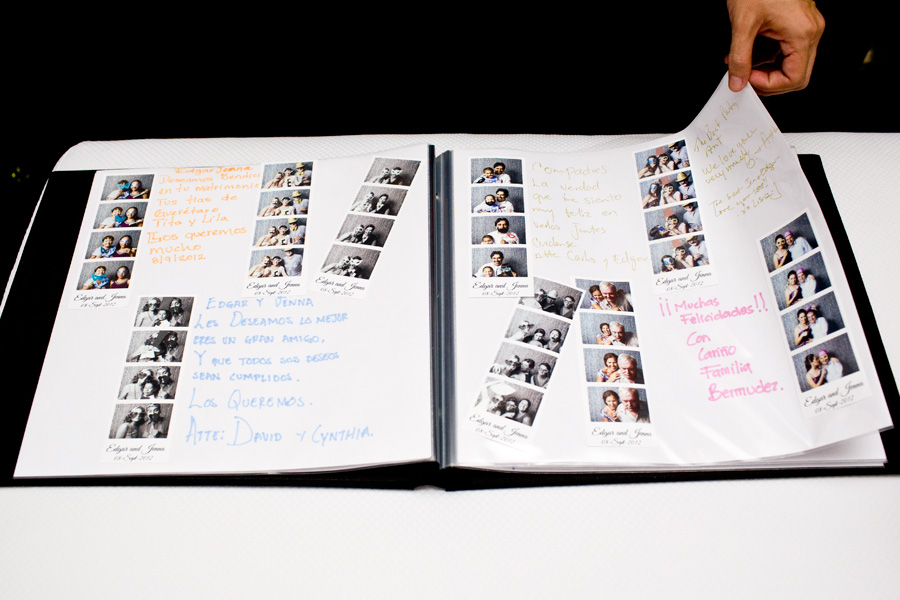 Edgar Jenna
Deseamos Bendici
en tu matrimonio
Tus tias de
Querétaro
Tita y Lila
Los queremos
mucho
8/9/2012
Edgar and Jenna
08-Sept-2012
Edgar and Jenna
08-Sept-2012
EDGAR Y JENNA
LES DESEAMOS LO MEJOR
ERES UN GRAN AMIGO,
Y QUE TODOS SUS DESEOS
SEAN CUMPLIDOS.
LOS QUEREMOS.
ATTE: DAVID Y CYNTHIA.
Edgar and Jenna
08-Sept-2012
Compadres
La verdad
que me siento
muy feliz en
verlos juntos
Cuidense
Atte Carlos y Edgar
Edgar and Jenna
08-Sept-2012
Edgar and Jenna
08-Sept-2012
¡¡Muchas
Felicidades!!
Con
Cariño
Familia
Bermudez.
Edgar and Jenna
08-Sept-2012
We love you
Edgar and Jenna
08-Sept-2012